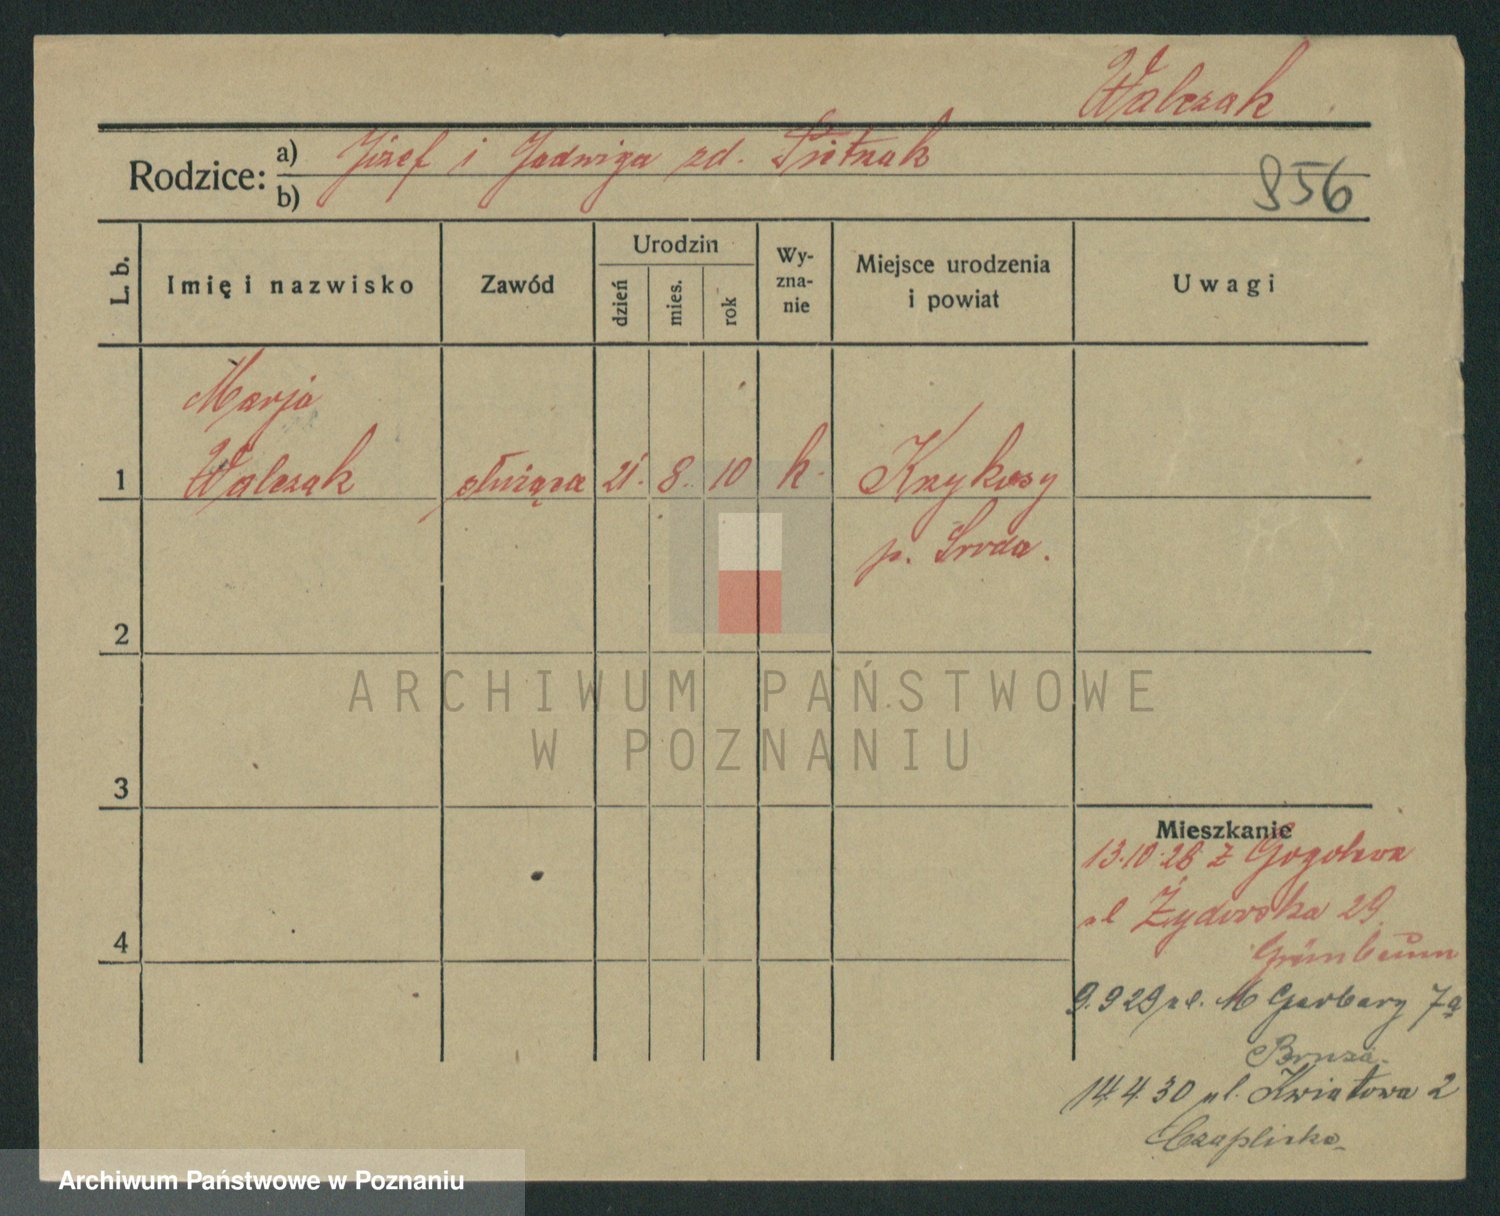 Walczak
Rodzice: a) Józef i Jadwiga zd.
b)
856
L. b.
Imię i nazwisko
Zawód
Urodzin
dzień
mies.
rok
Wy-
zna-
nie
Miejsce urodzenia
i powiat
Uwagi
Marja
1 Walczak służąca 21. 8. 10 k. Krzykosy
p. Środa.
2
3
4
Mieszkanie
13.10.28 z Gogolewa
ul Żydowska 29
Grünbaum
9.9 29 ul. M Garbary 7a
Bruza
14.4 30 ul. Kwiatowa 2
Czaplicka
ARCHIWUM PAŃSTWOWE
W POZNANIU
Archiwum Państwowe w Poznaniu